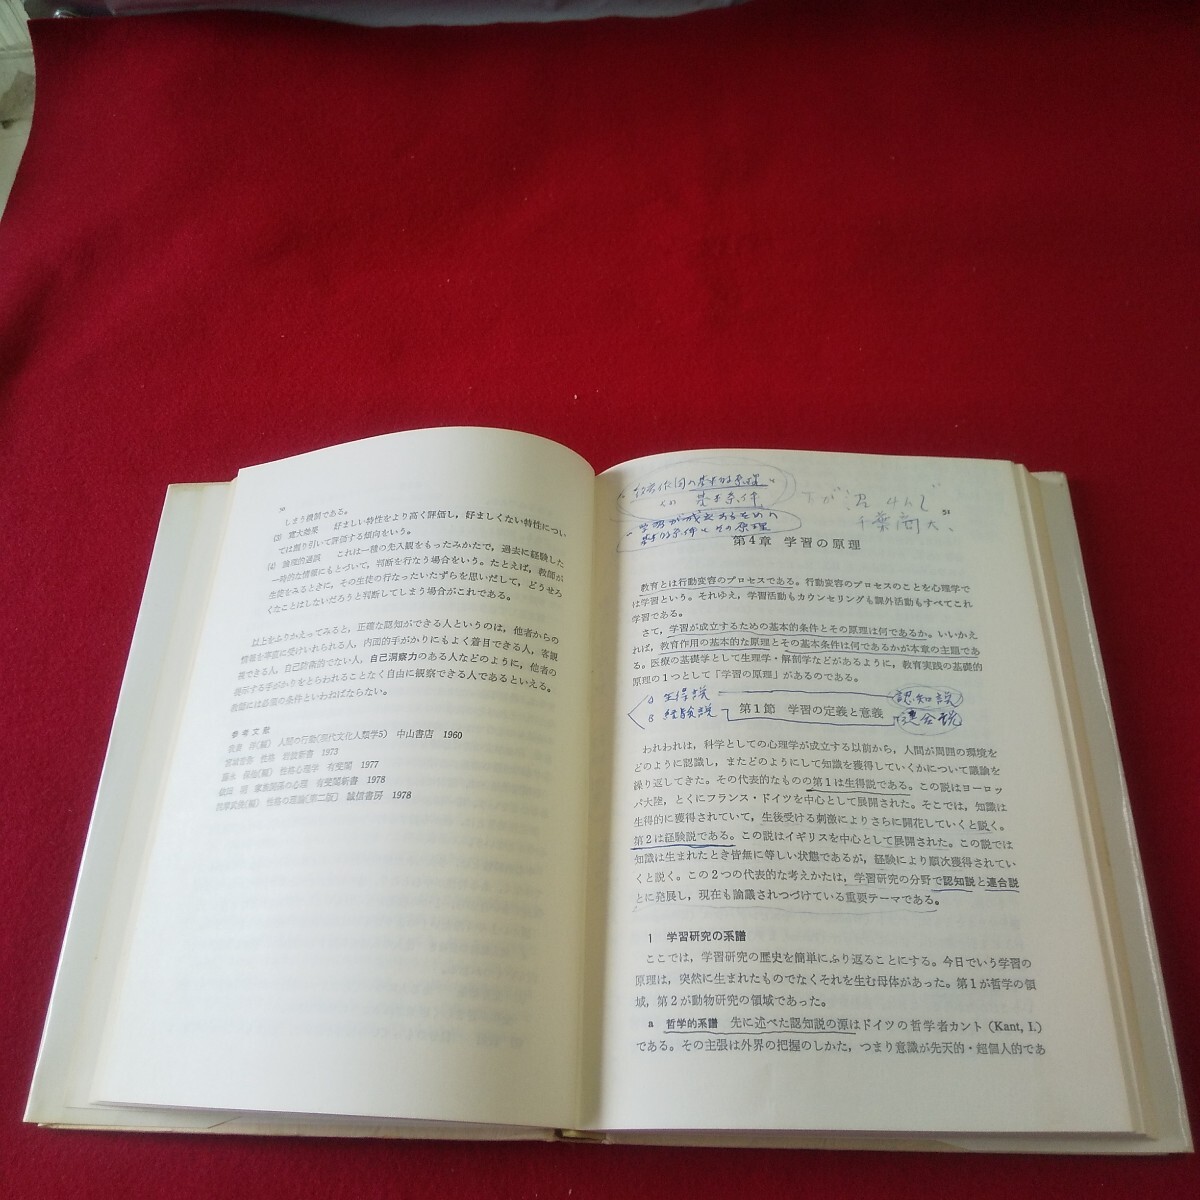 50
しまう誤謬である。
(3) 寛大効果　好ましい特性をより高く評価し，好ましくない特性につい
ては割り引いて評価する傾向をいう。
(4) 論理的過誤　これは一種の先入観をもったみかたで，過去に経験した
一時的な情報にもとづいて，判断を行なう場合をいう。たとえば，教師が
生徒をみるときに，その生徒の行なったいたずらを思いだして，どうせろ
くなことはしないだろうと判断してしまう場合がこれである。
以上をふりかえってみると，正確な認知ができる人というのは，他者からの
情報を率直に受けいれられる人，内面的手がかりにもよく着目できる人，客観
視できる人，自己防衛的でない人，自己洞察力のある人などのように，他者の
提示する手がかりをとらわれることなく自由に観察できる人であるといえる。
教師には必須の条件といわねばならない。
参考文献
(編) 人間の行動(現代文化人類学5)　中山書店　1960
宮城音弥　性格　岩波新書　1973
(編) 性格心理学　有斐閣　1977
家族関係の心理　有斐閣新書　1978
(編) 性格の理論[第二版]　誠信書房　1978
教育作用の基本的な原理
その　基本条件
学習が成立するための
基本的条件とその原理
千葉商大
51
第4章　学習の原理
教育とは行動変容のプロセスである。行動変容のプロセスのことを心理学で
は学習という。それゆえ，学習活動もカウンセリングも課外活動もすべてこれ
学習である。
さて，学習が成立するための基本的条件とその原理は何であるか。いいかえ
れば，教育作用の基本的な原理とその基本条件は何であるかが本章の主題であ
る。医療の基礎学として生理学・解剖学などがあるように，教育実践の基礎的
原理の1つとして「学習の原理」があるのである。
A 生得説　認知説
B 経験説　連合説
第1節　学習の定義と意義
われわれは，科学としての心理学が成立する以前から，人間が周囲の環境を
どのように認識し，またどのようにして知識を獲得していくかについて議論を
繰り返してきた。その代表的なものの第1は生得説である。この説はヨーロッ
パ大陸，とくにフランス・ドイツを中心として展開された。そこでは，知識は
生得的に獲得されていて，生後受ける刺激によりさらに開花していくと説く。
第2は経験説である。この説はイギリスを中心として展開された。この説では
知識は生まれたとき皆無に等しい状態であるが，経験により順次獲得されてい
くと説く。この2つの代表的な考えかたは，学習研究の分野で認知説と連合説
とに発展し，現在も論議されつづけている重要テーマである。
1　学習研究の系譜
ここでは，学習研究の歴史を簡単にふり返ることにする。今日でいう学習の
原理は，突然に生まれたものでなくそれを生む母体があった。第1が哲学の領
域，第2が動物研究の領域であった。
a　哲学的系譜　先に述べた認知説の源はドイツの哲学者カント (Kant, I.)
である。その主張は外界の把握のしかた，つまり意識が先天的・超個人的であ